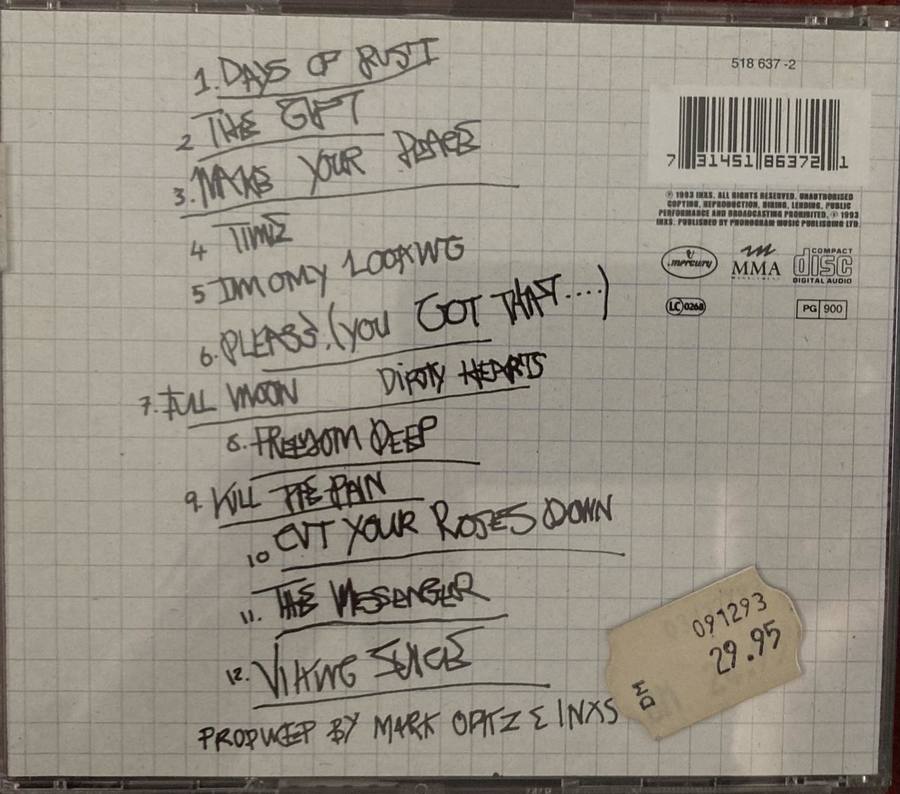 1. DAYS OF RUST
2 THE GIFT
3. MAKE YOUR PEACE
4 TIME
5 IM ONLY LOOKING
6. PLEASE. (YOU GOT THAT....)
7. FULL MOON DIRTY HEARTS
8. FREEDOM DEEP
9. KILL THE PAIN
10 CUT YOUR ROSES DOWN
11. THE MESSENGER
12. VIKING JUICE
PRODUCED BY MARK OPITZ & INXS
518 637 -2
7 31451 86372 1
℗ 1993 INXS. ALL RIGHTS RESERVED. UNAUTHORISED
COPYING, REPRODUCTION, HIRING, LENDING, PUBLIC
PERFORMANCE AND BROADCASTING PROHIBITED. © 1993
INXS. PUBLISHED BY PHONOGRAM MUSIC PUBLISHING LTD.
mercury
MMA
MANAGEMENT
COMPACT
disc
DIGITAL AUDIO
LC 0268
PG 900
091293
29.95